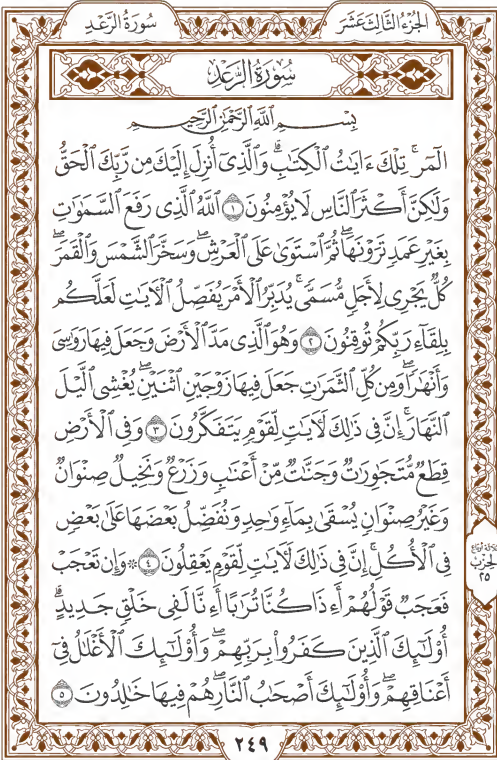 الجُزْءُ الثَّالِثَ عَشَرَ
سُورَةُ الرَّعْدِ
سُورَةُ الرَّعْدِ
بِسْمِ اللَّهِ الرَّحْمَٰنِ الرَّحِيمِ
الٓمٓرۚ تِلْكَ ءَايَٰتُ ٱلْكِتَٰبِۗ وَٱلَّذِىٓ أُنزِلَ إِلَيْكَ مِن رَّبِّكَ ٱلْحَقُّ
وَلَٰكِنَّ أَكْثَرَ ٱلنَّاسِ لَا يُؤْمِنُونَ ١ ٱللَّهُ ٱلَّذِى رَفَعَ ٱلسَّمَٰوَٰتِ
بِغَيْرِ عَمَدٍ تَرَوْنَهَاۖ ثُمَّ ٱسْتَوَىٰ عَلَى ٱلْعَرْشِۖ وَسَخَّرَ ٱلشَّمْسَ وَٱلْقَمَرَۖ
كُلٌّ يَجْرِى لِأَجَلٍ مُّسَمًّىۚ يُدَبِّرُ ٱلْأَمْرَ يُفَصِّلُ ٱلْءَايَٰتِ لَعَلَّكُم
بِلِقَآءِ رَبِّكُمْ تُوقِنُونَ ٢ وَهُوَ ٱلَّذِى مَدَّ ٱلْأَرْضَ وَجَعَلَ فِيهَا رَوَٰسِىَ
وَأَنْهَٰرًاۖ وَمِن كُلِّ ٱلثَّمَرَٰتِ جَعَلَ فِيهَا زَوْجَيْنِ ٱثْنَيْنِۖ يُغْشِى ٱلَّيْلَ
ٱلنَّهَارَۚ إِنَّ فِى ذَٰلِكَ لَءَايَٰتٍ لِّقَوْمٍ يَتَفَكَّرُونَ ٣ وَفِى ٱلْأَرْضِ
قِطَعٌ مُّتَجَٰوِرَٰتٌ وَجَنَّٰتٌ مِّنْ أَعْنَٰبٍ وَزَرْعٌ وَنَخِيلٌ صِنْوَانٌ
وَغَيْرُ صِنْوَانٍ يُسْقَىٰ بِمَآءٍ وَٰحِدٍ وَنُفَضِّلُ بَعْضَهَا عَلَىٰ بَعْضٍ
فِى ٱلْأُكُلِۚ إِنَّ فِى ذَٰلِكَ لَءَايَٰتٍ لِّقَوْمٍ يَعْقِلُونَ ٤ ۞ وَإِن تَعْجَبْ
فَعَجَبٌ قَوْلُهُمْ أَءِذَا كُنَّا تُرَٰبًا أَءِنَّا لَفِى خَلْقٍ جَدِيدٍۗ
أُو۟لَٰٓئِكَ ٱلَّذِينَ كَفَرُوا۟ بِرَبِّهِمْۖ وَأُو۟لَٰٓئِكَ ٱلْأَغْلَٰلُ فِىٓ
أَعْنَاقِهِمْۖ وَأُو۟لَٰٓئِكَ أَصْحَٰبُ ٱلنَّارِۖ هُمْ فِيهَا خَٰلِدُونَ ٥
ثلاثة أرباع
الحزب
٢٥
٢٤٩